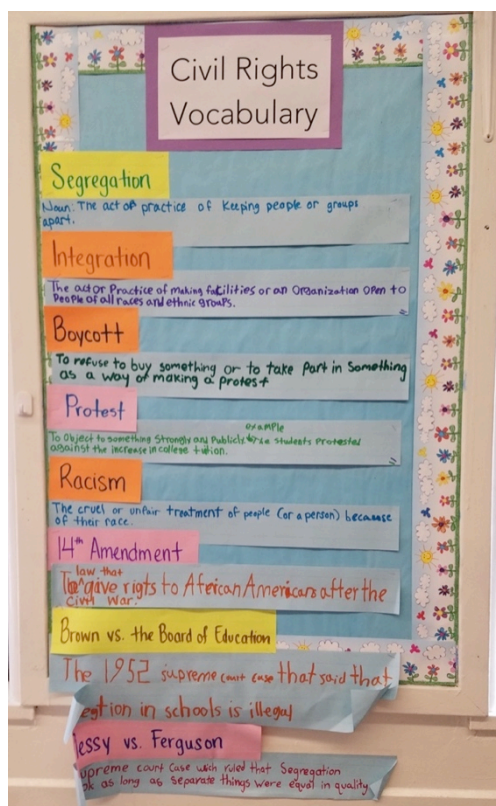 Civil Rights
Vocabulary
Segregation
Noun: The act of practice of Keeping people or groups
apart.
Integration
The act or Practice of making facilities or an Organization Open to
People of all races and ethnic groups.
Boycott
To refuse to buy something or to take Part in Something
as a way of making a protest
Protest
example
To Object to something Strongly and Publicly students Protested
against the increase in college tution.
Racism
The cruel or unfair treatment of people (or a person) because
of their race.
14th Amendment
law that
The ^ gave rigts to African Americans after the
Civil War.
Brown vs. the Board of Education
The 1952 supreme court case that said that
egtion in schools is illegal
lessy vs. Ferguson
upreme court case wich ruled that Segregation
ok as long as separate things were equal in quality